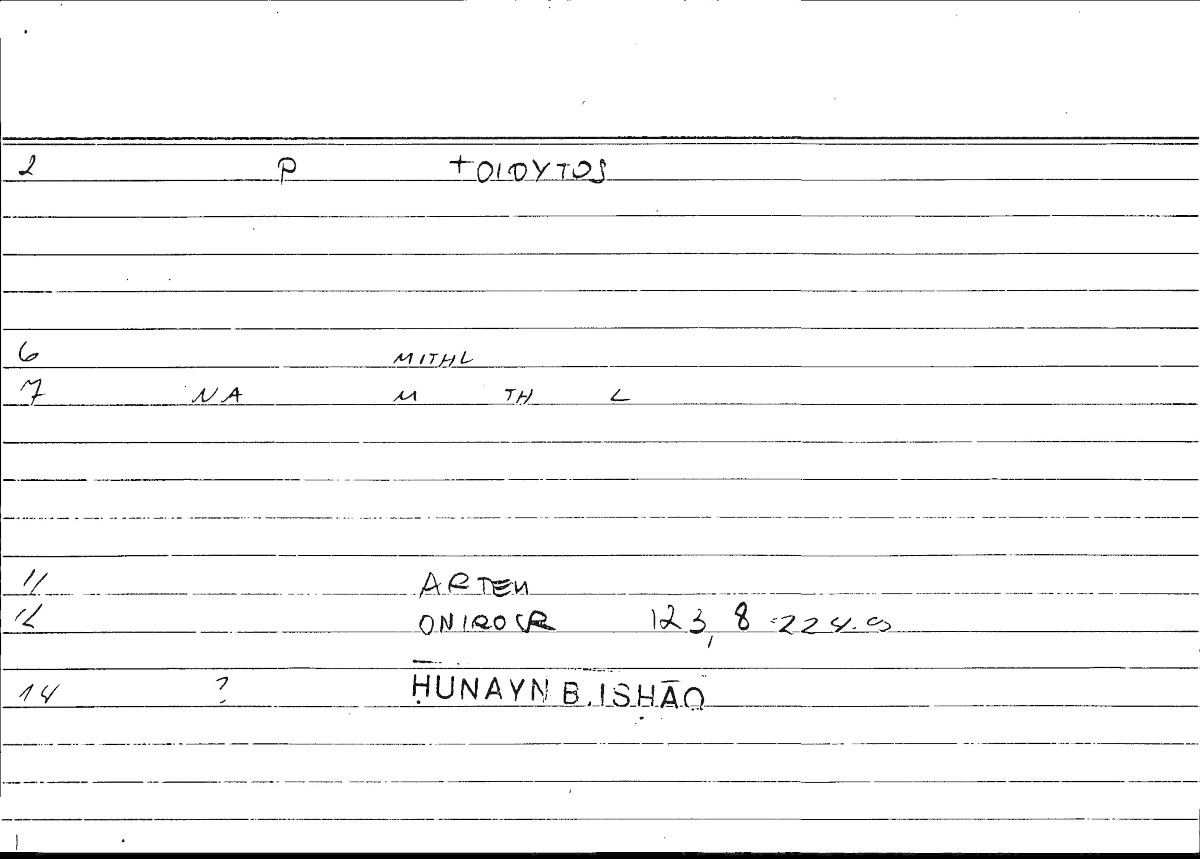 2 P +OIOYTOS
6 MITHL
7 NA M TH L
11 ARTEM
12 ONIROCR 123, 8 = 224.9
14 ? ḤUNAYN B. ISḤĀQ